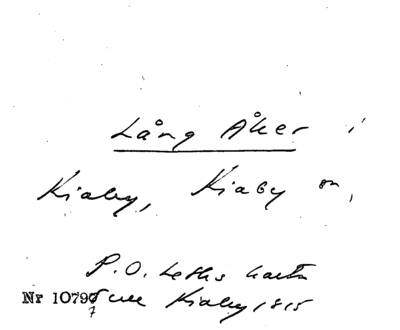 Lång Åker i
Kiaby, Kiaby sn,
P.O. Leths karta
Nr 10797 över Kiaby 1815